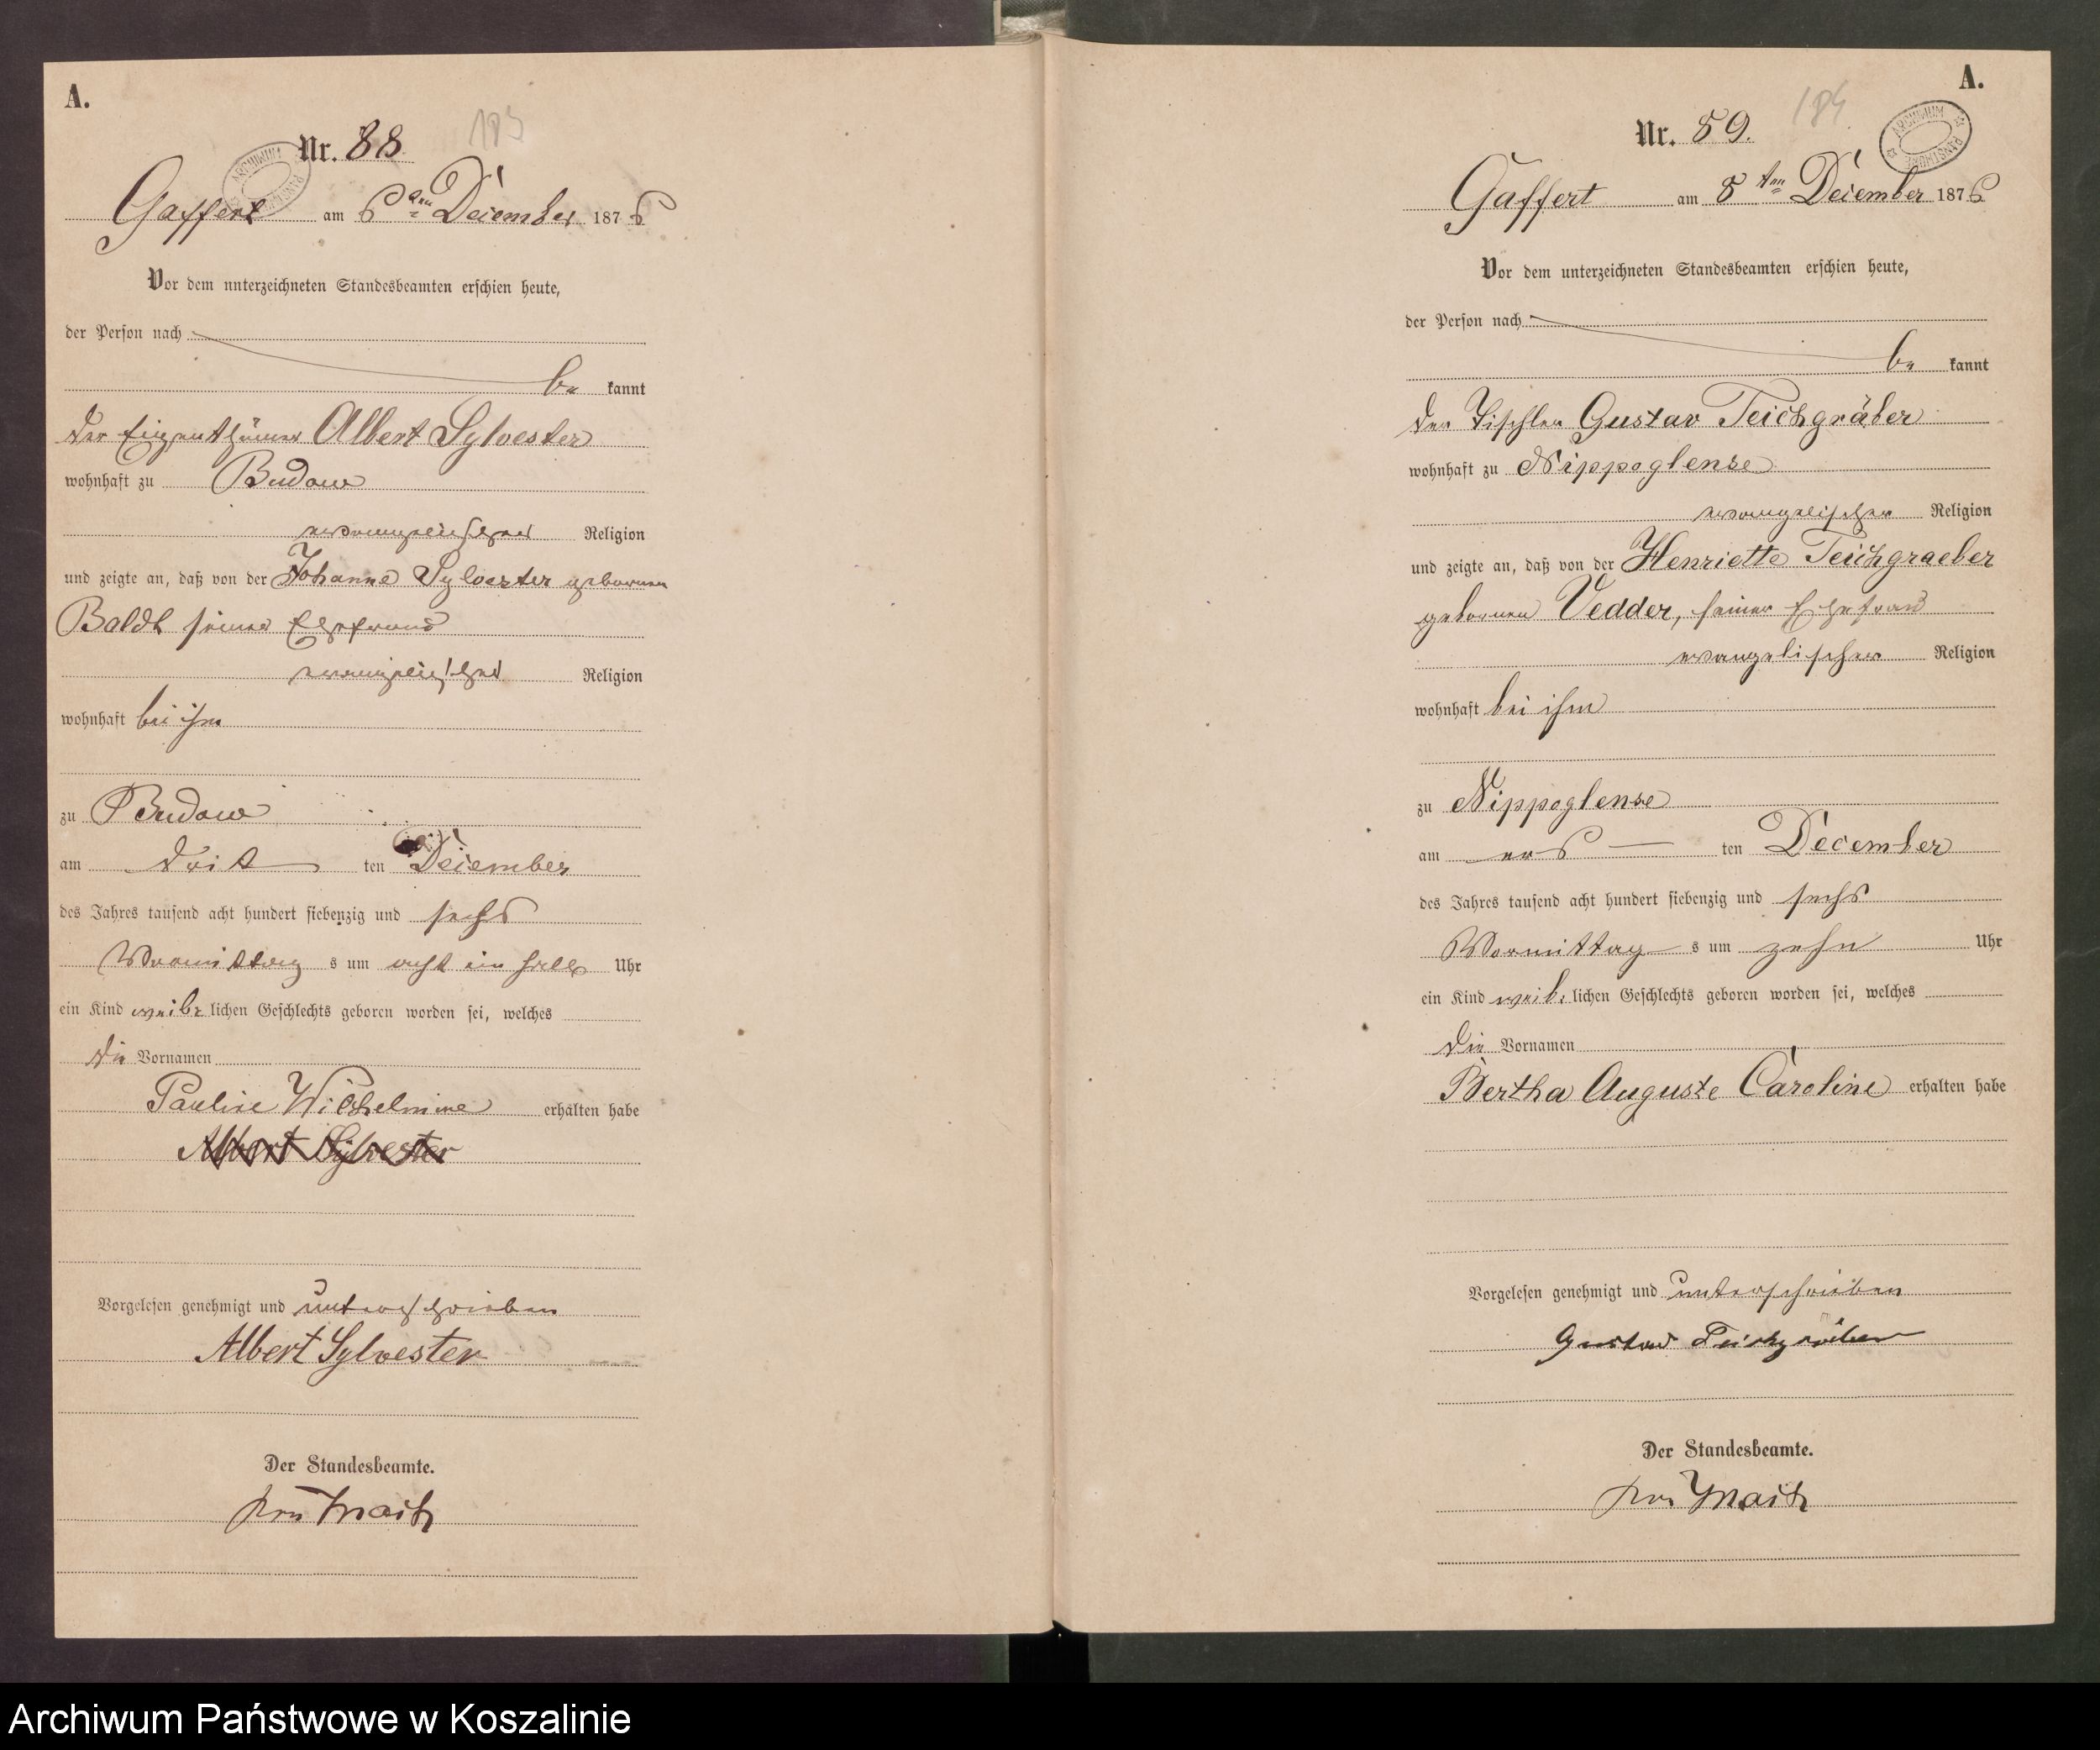 A.
Nr. 88
183
Gaffert am 6ten December 1876
Vor dem unterzeichneten Standesbeamten erschien heute,
der Person nach
be kannt
der Eigenthümer Albert Sylvester
wohnhaft zu Budow
evangelischer Religion
und zeigte an, daß von der Johanne Sylvester gebornen
Baldt seiner Ehefrau
evangelischer Religion
wohnhaft bei ihm
zu Budow
am drit ten December
des Jahres tausend acht hundert siebenzig und sechs
Vormittag s um acht ein halb Uhr
ein Kind weib lichen Geschlechts geboren worden sei, welches
die Vornamen
Pauline Wilhelmine erhalten habe
Albert Sylvester
Vorgelesen genehmigt und unterschrieben
Albert Sylvester
Der Standesbeamte.
A.
Nr. 89.
184
ARCHIWUM PAŃSTWOWE
Gaffert am 8ten December 1876
Vor dem unterzeichneten Standesbeamten erschien heute,
der Person nach
be kannt
der Tischler Gustav Teichgräber
wohnhaft zu Nippoglense
evangelischer Religion
und zeigte an, daß von der Henriette Teichgraeber
gebornen Vedder, seiner Ehefrau
evangelischer Religion
wohnhaft bei ihm
zu Nippoglense
am ers ten December
des Jahres tausend acht hundert siebenzig und sechs
Vormittag s um zehn Uhr
ein Kind weib lichen Geschlechts geboren worden sei, welches
die Vornamen
Bertha Auguste Caroline erhalten habe
Vorgelesen genehmigt und unterschrieben
Gustav Teichgräber
Der Standesbeamte.
Archiwum Państwowe w Koszalinie